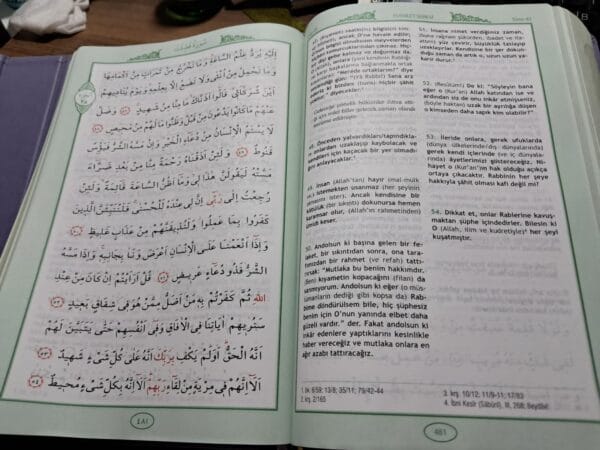 سُورَةُ فُصِّلَتْ
اِلَيْهِ يُرَدُّ عِلْمُ السَّاعَةِ وَمَا تَخْرُجُ مِنْ ثَمَرَاتٍ مِنْ اَكْمَامِهَا
وَمَا تَحْمِلُ مِنْ اُنْثٰى وَلَا تَضَعُ اِلَّا بِعِلْمِهِ وَيَوْمَ يُنَادِيهِمْ
اَيْنَ شُرَكَائِى قَالُوا اٰذَنَّاكَ مَا مِنَّا مِنْ شَهِيدٍ ﴿٤٧﴾ وَضَلَّ
عَنْهُمْ مَا كَانُوا يَدْعُونَ مِنْ قَبْلُ وَظَنُّوا مَا لَهُمْ مِنْ مَحِيصٍ ﴿٤٨﴾
لَا يَسْـَٔمُ الْاِنْسَانُ مِنْ دُعَاءِ الْخَيْرِ وَاِنْ مَسَّهُ الشَّرُّ فَيَؤُسٌ
قَنُوطٌ ﴿٤٩﴾ وَلَئِنْ اَذَقْنَاهُ رَحْمَةً مِنَّا مِنْ بَعْدِ ضَرَّاءَ
مَسَّتْهُ لَيَقُولَنَّ هٰذَا لِى وَمَا اَظُنُّ السَّاعَةَ قَائِمَةً وَلَئِنْ
رُجِعْتُ اِلٰى رَبِّى اِنَّ لِى عِنْدَهُ لَلْحُسْنٰى فَلَنُنَبِّئَنَّ الَّذِينَ
كَفَرُوا بِمَا عَمِلُوا وَلَنُذِيقَنَّهُمْ مِنْ عَذَابٍ غَلِيظٍ ﴿٥٠﴾
وَاِذَا اَنْعَمْنَا عَلَى الْاِنْسَانِ اَعْرَضَ وَنَاٰ بِجَانِبِهِ وَاِذَا مَسَّهُ
الشَّرُّ فَذُو دُعَاءٍ عَرِيضٍ ﴿٥١﴾ قُلْ اَرَاَيْتُمْ اِنْ كَانَ مِنْ عِنْدِ
اللّٰهِ ثُمَّ كَفَرْتُمْ بِهِ مَنْ اَضَلُّ مِمَّنْ هُوَ فِى شِقَاقٍ بَعِيدٍ ﴿٥٢﴾
سَنُرِيهِمْ اٰيَاتِنَا فِى الْاٰفَاقِ وَفِى اَنْفُسِهِمْ حَتّٰى يَتَبَيَّنَ لَهُمْ
اَنَّهُ الْحَقُّ اَوَلَمْ يَكْفِ بِرَبِّكَ اَنَّهُ عَلٰى كُلِّ شَىْءٍ شَهِيدٌ ﴿٥٣﴾
اَلَا اِنَّهُمْ فِى مِرْيَةٍ مِنْ لِقَاءِ رَبِّهِمْ اَلَا اِنَّهُ بِكُلِّ شَىْءٍ مُحِيطٌ ﴿٥٤﴾
٤٨١
FUSSİLET SÛRESİ
Sûre-41
bilgisi
O'na havale edilir.
olmaksızın meyvelerden
tomurcuklarından çıkmaz. Hiç-
gebe kalmaz ve doğurmaz da.
bağırmakta ortak
"Nerede ortaklarım!" diye
"(Yâ Rabbi!) Sana arz
ki bizden (buna) hiçbir şahit
diyecekler.
48. Önceden yalvardıkları/tapındıkla-
onlardan uzaklaşıp kaybolacak ve
kendileri için kaçacak bir yer olmadı-
ğını anlayacaklar.
49. İnsan (Allah'tan) hayır (mal-mülk
istemekten usanmaz (her şeyinin
olmasını ister). Ancak kendisine bir
kötülük (bir sıkıntı) dokunursa hemen
karamsar olur, (Allah'ın rahmetinden)
ümit keser.
50. Andolsun ki başına gelen bir fe-
laket, bir sıkıntıdan sonra, ona tara-
fımızdan bir rahmet (ve refah) tattı-
rırsak: "Mutlaka bu benim hakkımdır.
(Ben) kıyametin kopacağını (filan) da
sanmıyorum. Andolsun ki eğer (o mü-
slümanların dediği gibi kopsa da) Rab-
bime döndürülsem bile, hiç şüphesiz
benim için O'nun yanında elbet daha
güzeli vardır." der. Fakat andolsun ki
inkâr edenlere yaptıklarını kesinlikle
haber vereceğiz ve mutlaka onlara en
ağır azabı tattıracağız.
51. İnsana nimet verdiğimiz zaman,
yüz çevirir, büyüklük taslayıp
uzaklaşır. Kendisine bir şer dokun-
duğu zaman da artık o, uzun uzun ya-
karır durur.
52. (Resûlüm!) De ki: "Söyleyin bana
eğer o (Kur'an) Allah katından ise ve
ardından siz de onu inkâr etmişseniz,
(böyle haktan) uzak bir ayrılığa düşen
o kimseden daha sapık kim olabilir?"
53. İleride onlara, gerek ufuklarda
(dünya ülkelerinde/dış dünyalarında)
gerek kendi içlerinde (ve iç dünyala-
rında) âyetlerimizi göstereceğiz. Ni-
hayet o (Kur'an)'ın hak olduğu açıkça
ortaya çıkacaktır. Rabbinin her şeye
hakkıyla şâhit olması kafi değil mi?
54. Dikkat et, onlar Rablerine kavuş-
maktan şüphe içindedirler. Bilesin ki
O (Allah, ilim ve kudretiyle) her şeyi
kuşatmıştır.
1. bk. 6/59; 13/8; 35/11; 79/42-44
2. krş. 2/165
3. krş. 10/12; 11/9-11; 17/83
4. İbni Kesîr (Sâbûnî), III, 268; Beydâvî
481